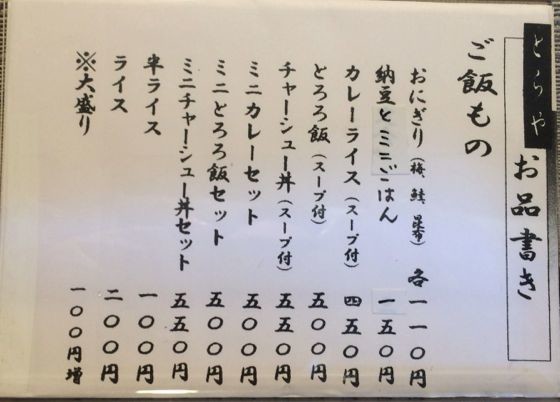 とらや
お品書き
ご飯もの
おにぎり（梅、鮭、昆布） 各一一〇円
納豆とミニごはん 一五〇円
カレーライス（スープ付） 四五〇円
とろろ飯（スープ付） 五〇〇円
チャーシュー丼（スープ付） 五五〇円
ミニカレーセット 五〇〇円
ミニとろろ飯セット 五〇〇円
ミニチャーシュー丼セット 五五〇円
半ライス 一〇〇円
ライス 二〇〇円
※大盛り 一〇〇円増